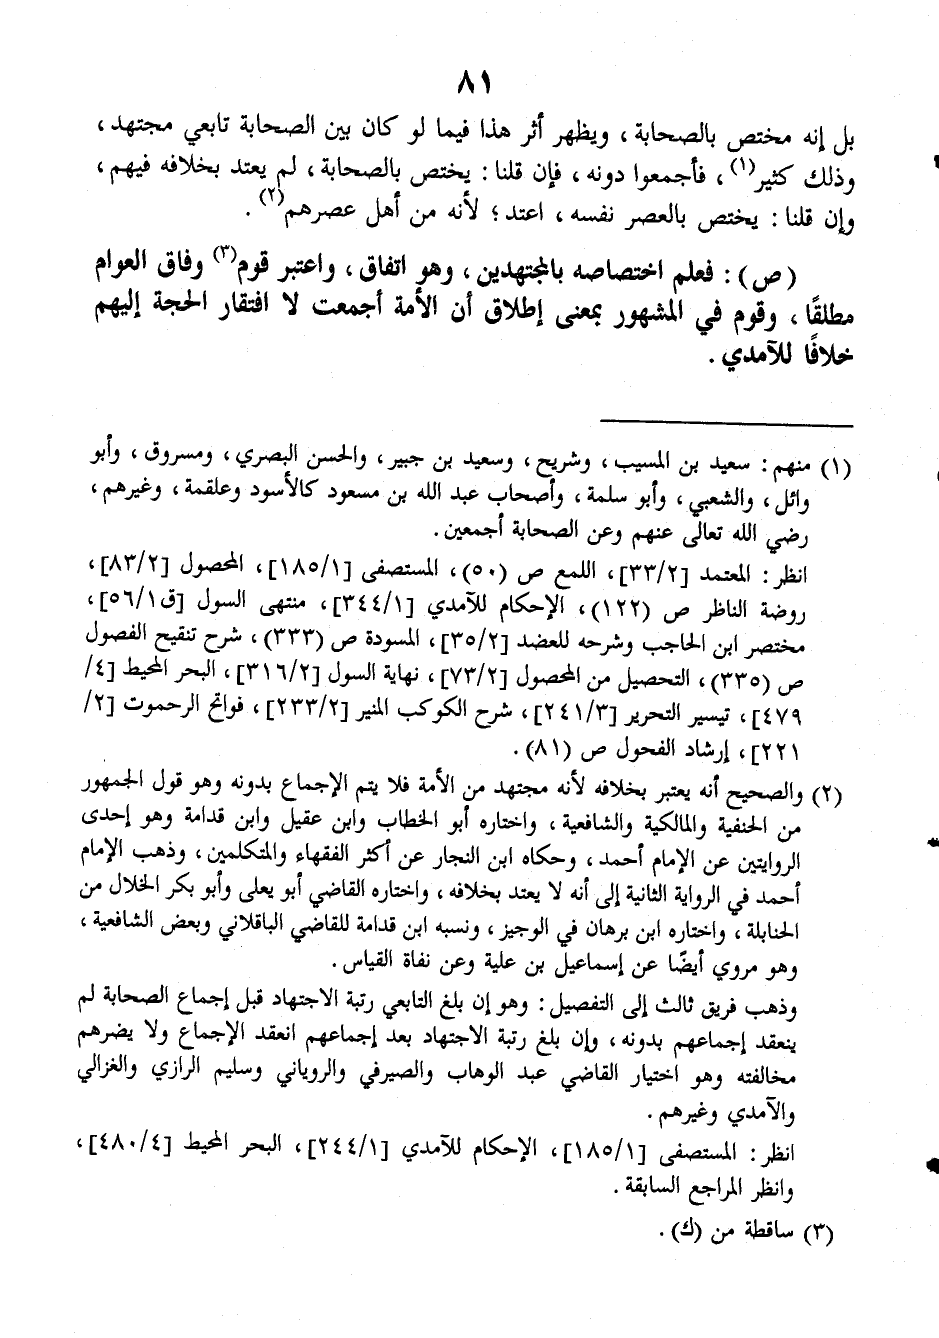 ٨١
بل إنه مختص بالصحابة ، ويظهر أثر هذا فيما لو كان بين الصحابة تابعي مجتهد ،
وذلك كثير(١) ، فأجمعوا دونه ، فإن قلنا : يختص بالصحابة ، لم يعتد بخلافه فيهم ،
وإن قلنا : يختص بالعصر نفسه ، اعتد ؛ لأنه من أهل عصرهم(٢) .
(ص) : فعلم اختصاصه بالمجتهدين ، وهو اتفاق ، واعتبر قوم(٣) وفاق العوام
مطلقًا ، وقوم في المشهور بمعنى إطلاق أن الأمة أجمعت لا افتقار الحجة إليهم
خلافًا للآمدي .
(١) منهم : سعيد بن المسيب ، وشريح ، وسعيد بن جبير ، والحسن البصري ، ومسروق ، وأبو
وائل ، والشعبي ، وأبو سلمة ، وأصحاب عبد الله بن مسعود كالأسود وعلقمة ، وغيرهم ،
رضي الله تعالى عنهم وعن الصحابة أجمعين.
انظر : المعتمد [٣٣/٢]، اللمع ص (٥٠)، المستصفى [١٨٥/١]، المحصول [٨٣/٢]،
روضة الناظر ص (١٢٢)، الإحكام للآمدي [٣٤٤/١]، منتهى السول [ق٥٦/١]،
مختصر ابن الحاجب وشرحه للعضد [٣٥/٢]، المسودة ص (٣٣٣)، شرح تنقيح الفصول
ص (٣٣٥)، التحصيل من المحصول [٧٣/٢]، نهاية السول [٣١٦/٢]، البحر المحيط [٤/
٤٧٩]، تيسير التحرير [٢٤١/٣]، شرح الكوكب المنير [٢٣٣/٢]، فواتح الرحموت [٢/
٢٢١]، إرشاد الفحول ص (٨١).
(٢) والصحيح أنه يعتبر بخلافه لأنه مجتهد من الأمة فلا يتم الإجماع بدونه وهو قول الجمهور
من الحنفية والمالكية والشافعية ، واختاره أبو الخطاب وابن عقيل وابن قدامة وهو إحدى
الروايتين عن الإمام أحمد ، وحكاه ابن النجار عن أكثر الفقهاء والمتكلمين ، وذهب الإمام
أحمد في الرواية الثانية إلى أنه لا يعتد بخلافه ، واختاره القاضي أبو يعلى وأبو بكر الخلال من
الحنابلة ، واختاره ابن برهان في الوجيز ، ونسبه ابن قدامة للقاضي الباقلاني وبعض الشافعية ،
وهو مروي أيضًا عن إسماعيل بن علية وعن نفاة القياس .
وذهب فريق ثالث إلى التفصيل : وهو إن بلغ التابعي رتبة الاجتهاد قبل إجماع الصحابة لم
ينعقد إجماعهم بدونه ، وإن بلغ رتبة الاجتهاد بعد إجماعهم انعقد الإجماع ولا يضرهم
مخالفته وهو اختيار القاضي عبد الوهاب والصيرفي والروياني وسليم الرازي والغزالي
والآمدي وغيرهم .
انظر : المستصفى [١٨٥/١]، الإحكام للآمدي [٢٤٤/١]، البحر المحيط [٤٨٠/٤]،
وانظر المراجع السابقة .
(٣) ساقطة من (ك) .